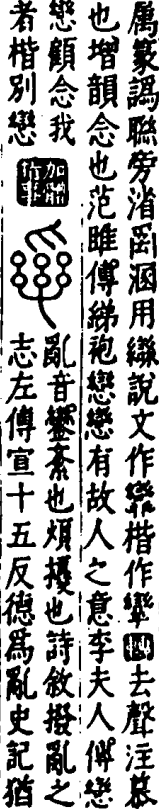 属篆譌聯旁渻用䜌說文作楷作孿去聲注慕
也增韻念也范雎傳綈袍戀戀有故人之意李夫人傳戀
戀顧念我
者楷別戀
亂音鑾紊也煩擾也詩敘撥亂之
志左傳宣十五反德爲亂史記猶